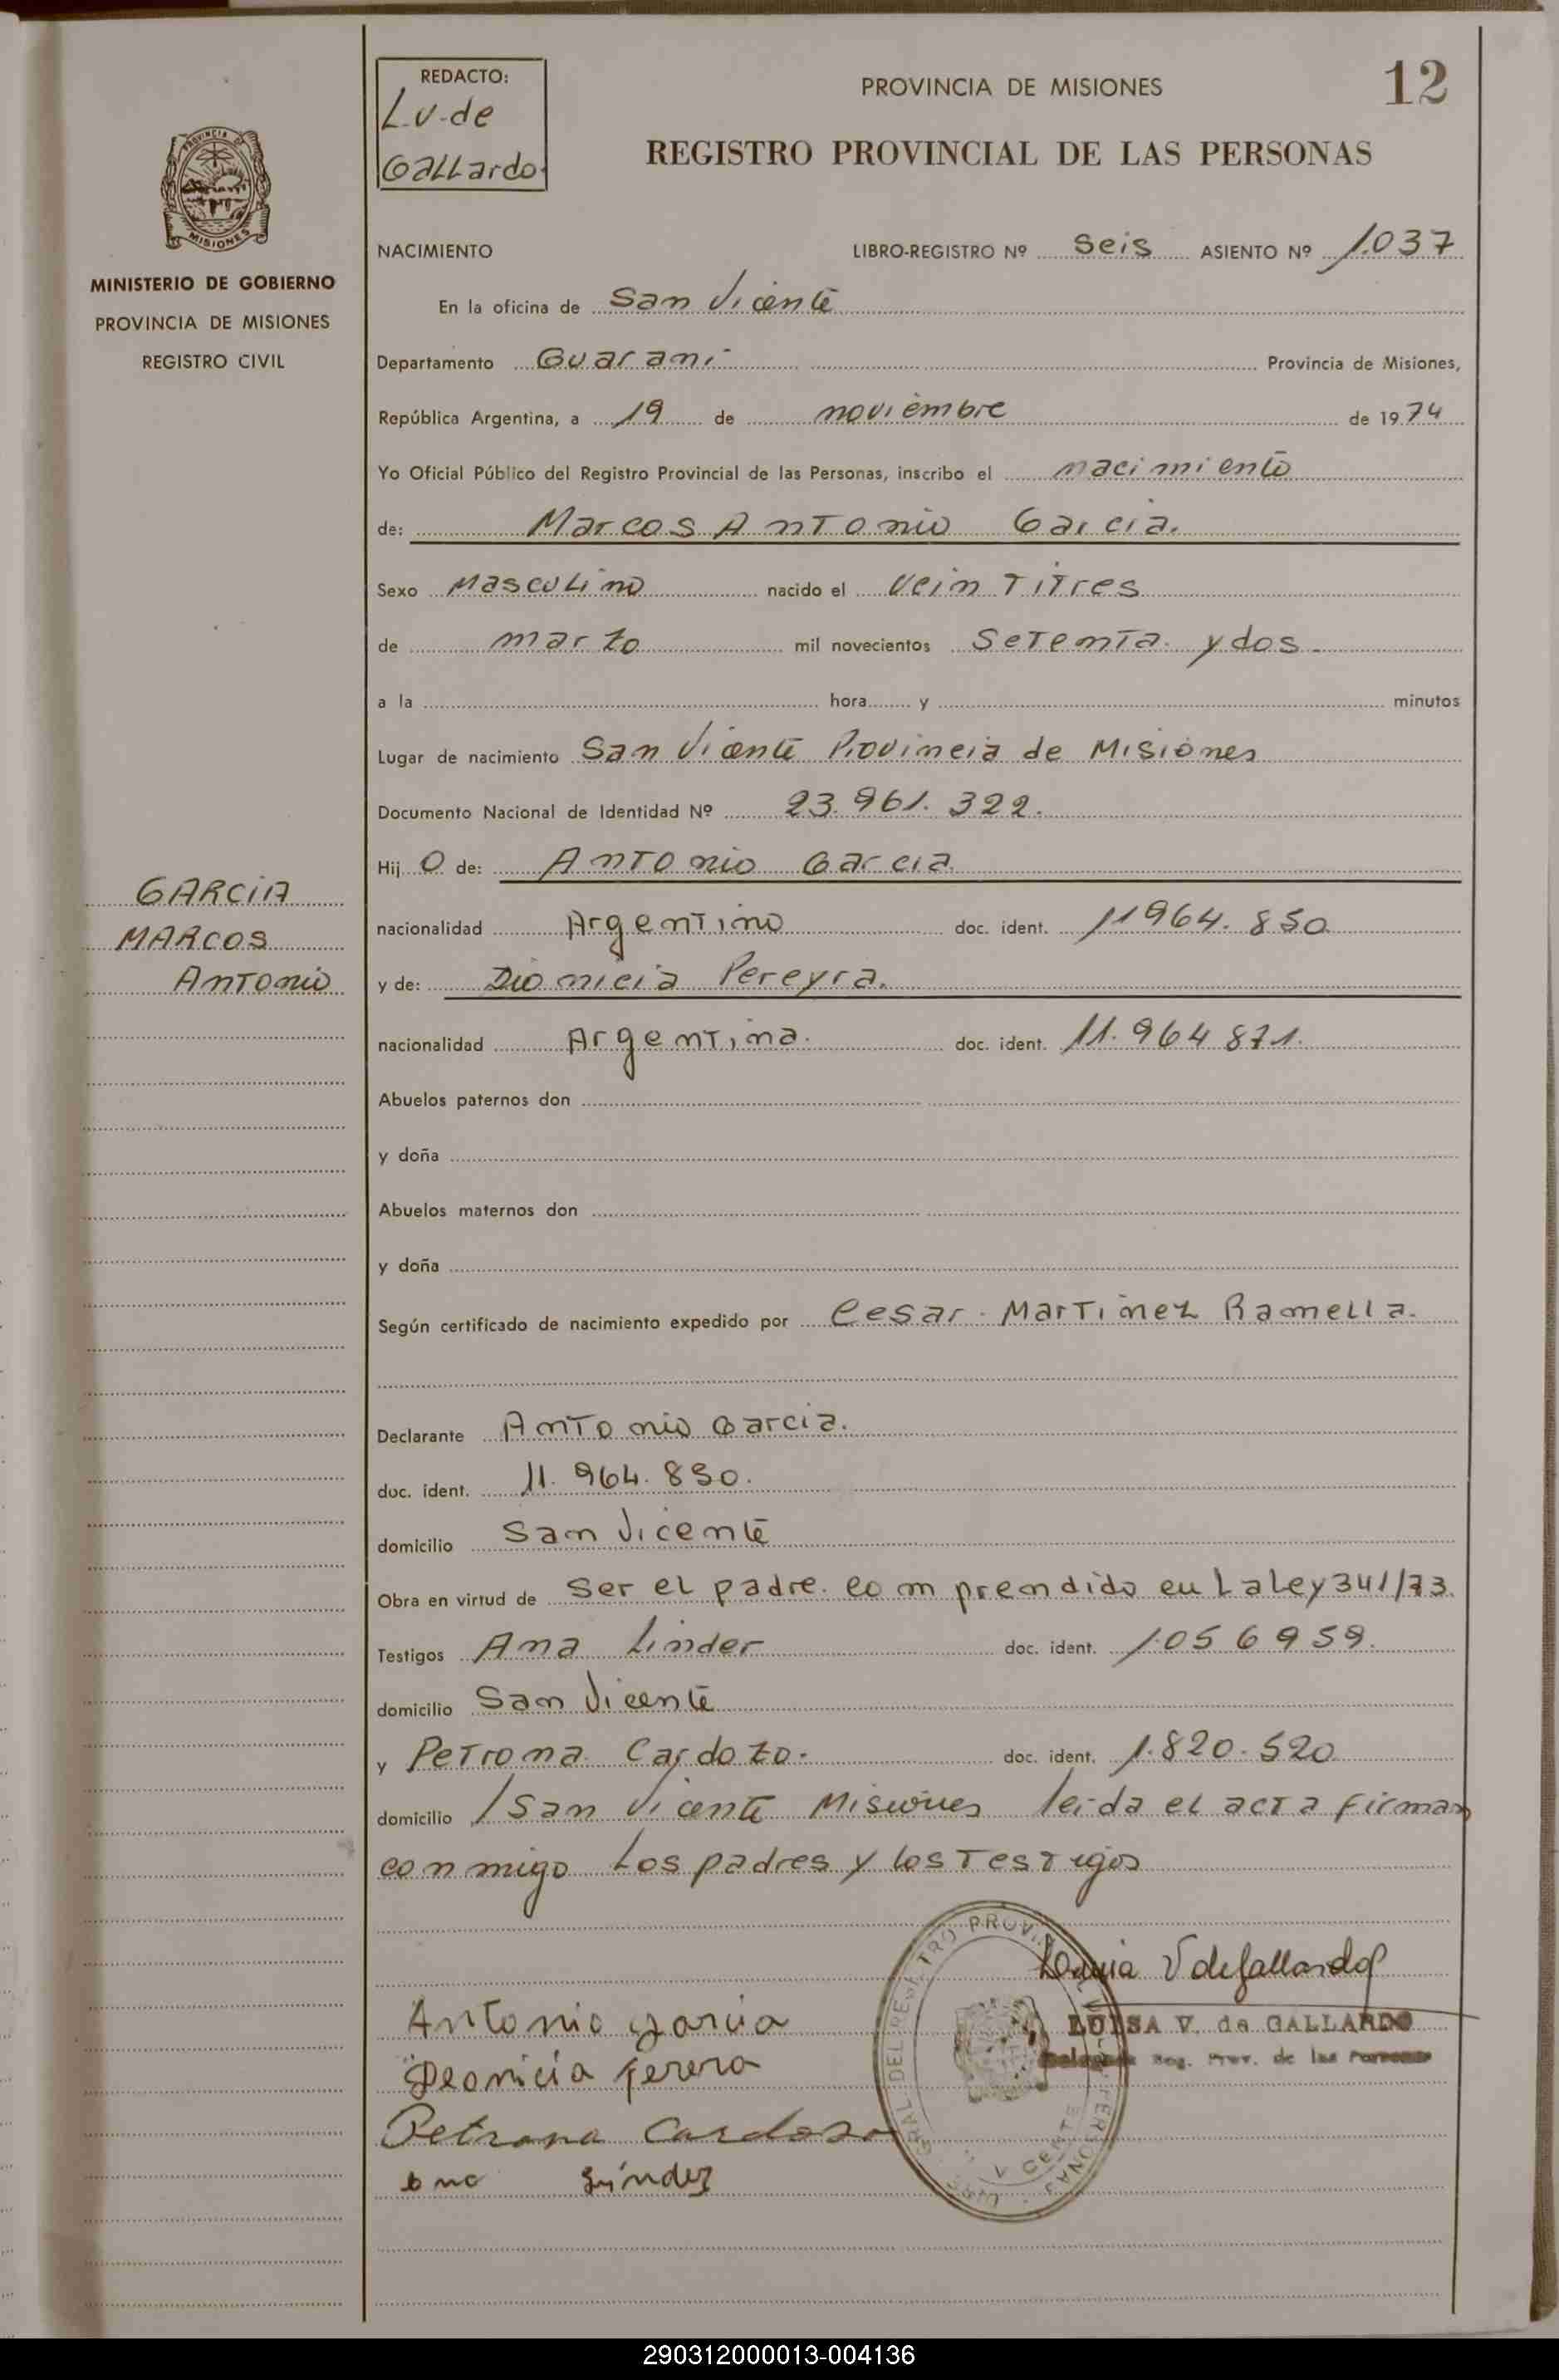 12
REDACTO:
L.V. de
Gallardo.
PROVINCIA DE MISIONES
REGISTRO PROVINCIAL DE LAS PERSONAS
PROVINCIA DE
MISIONES
MINISTERIO DE GOBIERNO
PROVINCIA DE MISIONES
REGISTRO CIVIL
NACIMIENTO LIBRO-REGISTRO Nº Seis ASIENTO Nº 1.037
En la oficina de San Vicente
Departamento Guaraní Provincia de Misiones,
República Argentina, a 19 de noviembre de 1974
Yo Oficial Público del Registro Provincial de las Personas, inscribo el nacimiento
de: Marcos Antonio Garcia.
Sexo Masculino nacido el Veintitres
de marzo mil novecientos Setenta y dos.
a la hora y minutos
Lugar de nacimiento San Vicente Provincia de Misiones
Documento Nacional de Identidad Nº 23.961.322.
Hijo de: Antonio Garcia.
nacionalidad Argentino doc. ident. 11964.850
y de: Dionicia Pereyra.
nacionalidad Argentina. doc. ident. 11.964 871.
Abuelos paternos don
y doña
Abuelos maternos don
y doña
Según certificado de nacimiento expedido por Cesar Martinez Ramella.
Declarante Antonio Garcia.
doc. ident. 11.964.850.
domicilio San Vicente
Obra en virtud de Ser el padre. comprendido en La Ley 341/73.
Testigos Ana Linder doc. ident. 1056959.
domicilio San Vicente
y Petrona Cardozo. doc. ident. 1.820.520
domicilio San Vicente Misiones leida el acta firman
conmigo Los padres y los Testigos
GARCIA
MARCOS
Antonio
Antonio garcia
Deonicia Perera
Petrona Cardoso
ana Linder
V de Gallardo
LUISA V. de GALLARDO
Reg. Prov. de las Personas
290312000013-004136